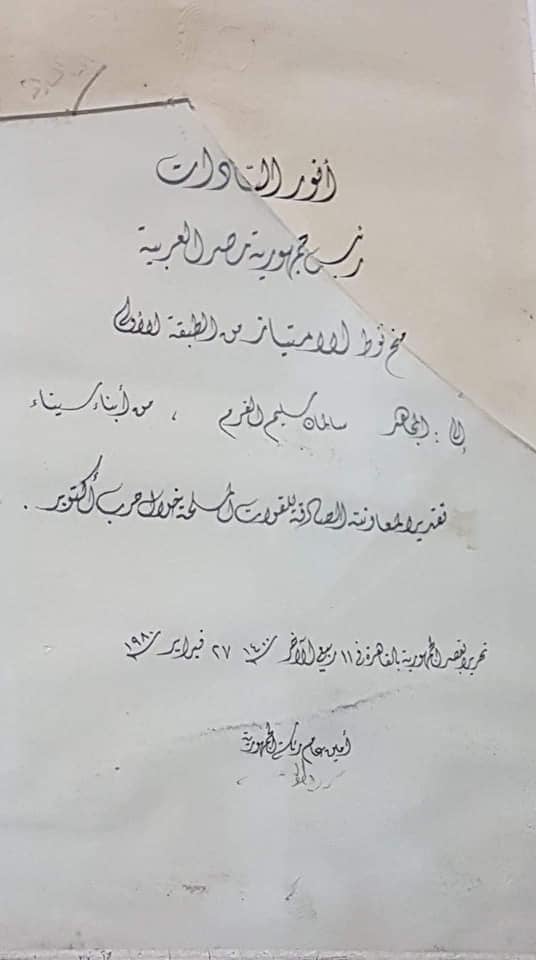 أنور السادات
رئيس جمهورية مصر العربية
منح نوط الامتياز من الطبقة الأولى
إلى : المجاهد سالمان سليم الفرم ، من أبناء سيناء
تقديرا لمعاونته الصادقة للقوات المسلحة خلال حرب أكتوبر .
تحريرا بقصر الجمهورية بالقاهرة في ١١ ربيع الآخر ١٤٠٠ ٢٧ فبراير ١٩٨٠
أمين عام رئاسة الجمهورية